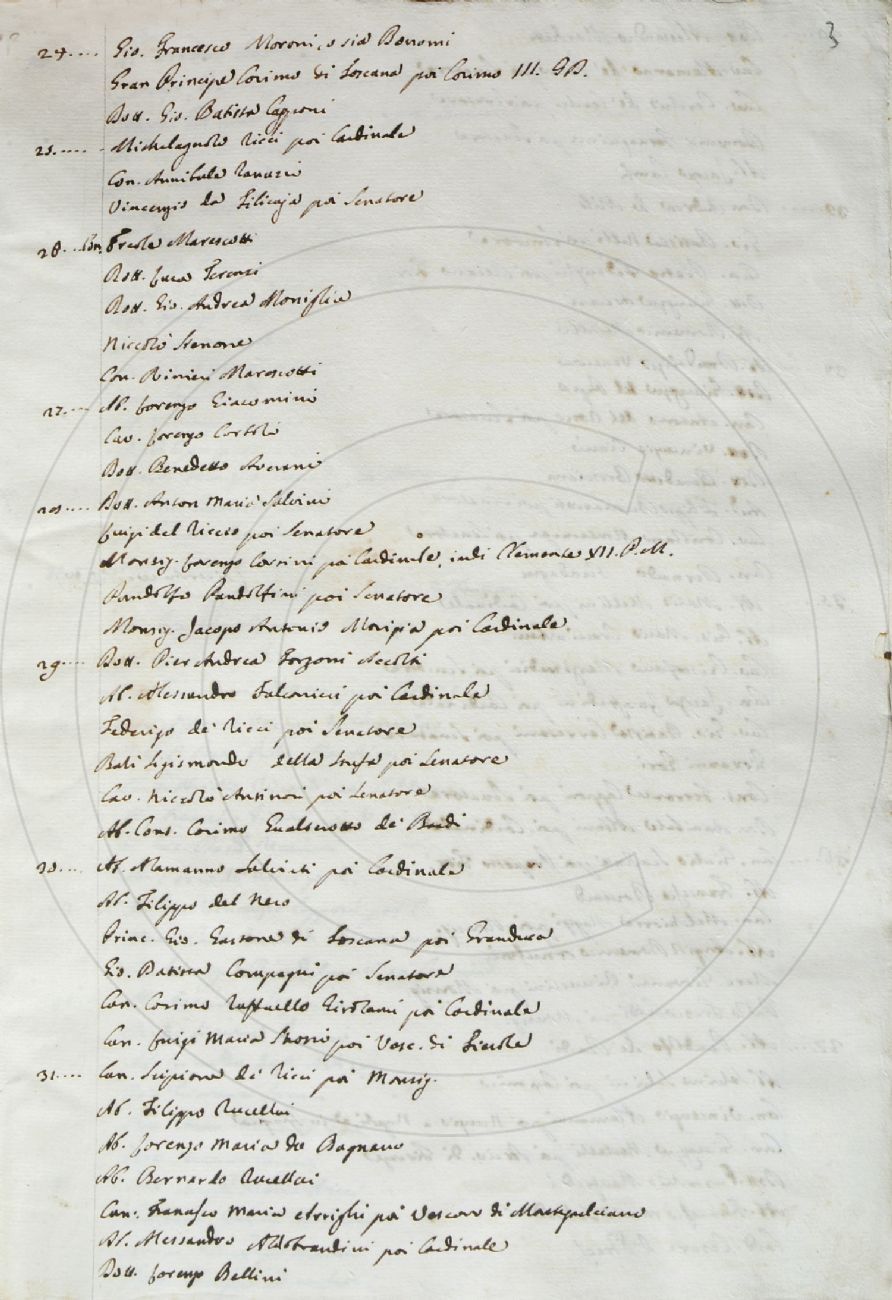 3
24.... Gio. Francesco Moroni, o sia Bonomi
Gran Principe Cosimo di Toscana poi Cosimo III. GD.
Dott. Gio. Batista Capponi
25..... Michelagnolo Ricci poi Cardinale
Con. Annibale Ranuzzi
Vincenzio da Filicaja poi Senatore
26... Con. Ercole Marescotti
Dott. Luca Terenzi
Dott. Gio. Andrea Moniglia
Niccolò Stenone
Con. Rinieri Marescotti
27.... Ab. Lorenzo Giacomini
Cav. Lorenzo
Dott. Benedetto Averani
28.... Dott. Anton Maria Salvini
Luigi del Riccio poi Senatore
Monsig. Lorenzo Corsini poi Cardinale, indi Clemente XII. P.M.
Pandolfo Pandolfini poi Senatore
Monsig. Jacopo Antonio Morigia poi Cardinale
29.... Dott. Pier Andrea Forzoni Accolti
Ab. Alessandro Falconieri poi Cardinale
Federigo de' Ricci poi Senatore
Balì Sigismondo della Stufa poi Senatore
Cav. Niccolò Antinori poi Senatore
Ab. Cont. Cosimo Gualterotto de' Bardi
30.... Ab. Alamanno Salviati poi Cardinale
Ab. Filippo del Nero
Princ. Gio. Gastone di Toscana poi Granduca
Gio. Batista Compagni poi Senatore
Can. Cosimo Raffaello Girolami poi Cardinale
Can. Luigi Maria Strozzi poi Vesc. di Fiesole
31.... Can. Scipione de' Ricci poi Monsig.
Ab. Filippo Rucellai
Ab. Lorenzo Maria da Bagnano
Ab. Bernardo Rucellai
Can. Francesco Maria Arrighi poi Vescovo di Montepulciano
Ab. Alessandro Aldobrandini poi Cardinale
Dott. Lorenzo Bellini